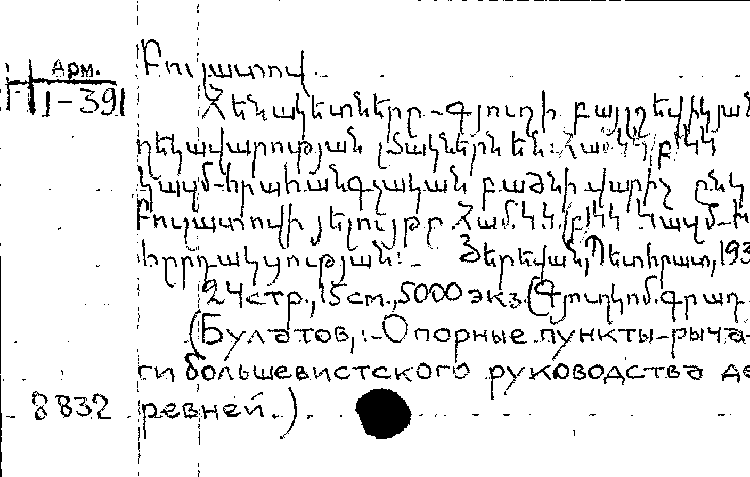 Арм.
I-391
Բուլատով.
Հենակետները-Գյուղի բալշեվիկյան
ղեկավարության լծակներն են: Համկ/բ/կկ
կազմ-հրահանգչական բաժնի վարիչ ընկ
Բուլատովի յելույթը Համ.Կ.Կ./բ/կկ կազմ-
խորհրդակցության: Յերեվան, Պետհրատ, 193
24стр., 15см., 5000 экз. (Գյուղկոմ. գրադ.
(Булатов,:-Опорные пункты-рыча-
ги большевистского руководства де
8832 ревней.)